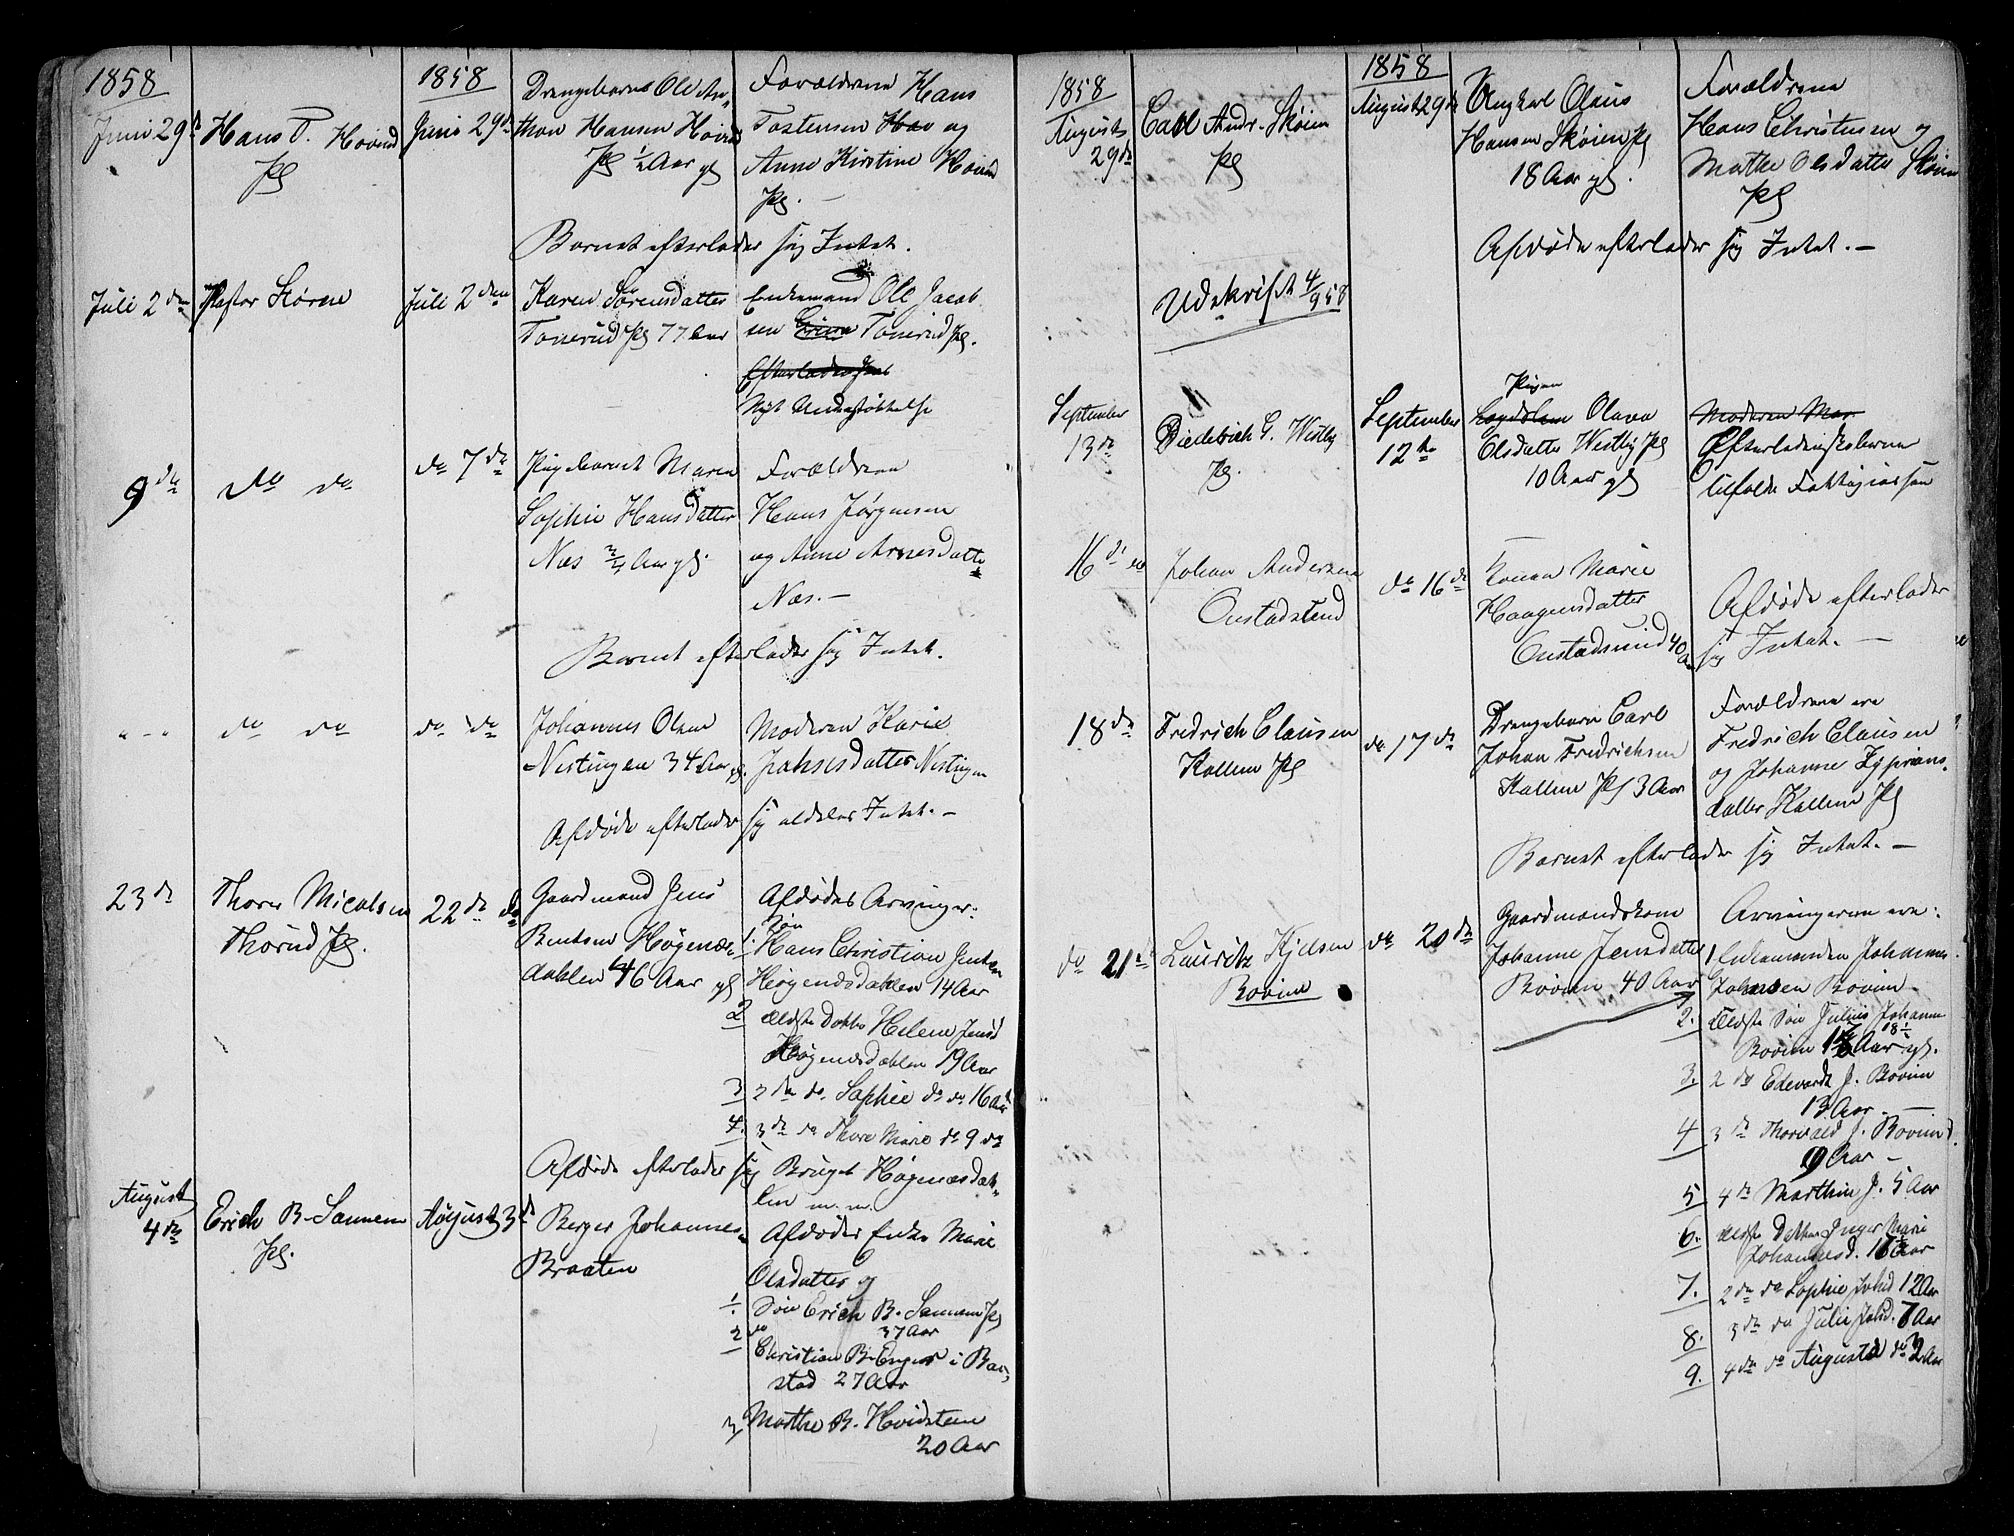 1858
Juni 29d
Hans T. Hovind
Pl
1858
Juni 29de
Drengebarnet Ole An-
thon Hansen Hovind
Pl ½ Aar gl
Forældrene Hans
Tostensen Hov og
Anne Kirstine Hovind
Pl. —
Barnet efterlader sig Intet.
Juli 2den
Pastor Skören
Juli 2den
Karen Sörensdatter
Tonerud Pl 77 Aar
Enkemand Ole Jacob
sen Tonerud Pl.
Efterlader sig
Nyt Understøttelse
9de
do do
do 7de
Pigebarnet Maren
Sophie Hansdatter
Næs ¾ Aar gl.
Forældrene
Hans Jørgensen
og Anne Arnesdatter
Næs. —
Barnet efterlader sig Intet.
" - "
do do
do do
Johannes Olsen
Nestingen 34 Aar gl.
Moderen Karie
Johnsdatter Nestingen
Afdøde efterlader sig aldeles Intet. —
23de
Thorer Nicolsen
Thorud Pl.
22de do
Gaardmand Jens
Bentsen Høgenæs-
dahlen 46 Aar gl
Afdødes Arvinger:
1. Søn
Hans Christian Jensen
Høgendsdahlen 14 Aar
2 Ældste Datter Helene Jensd
Høgenæsdahlen 19 Aar
3 2den do. Sophie do do 16 Aar
4. 3de do Thore Marie do 9 do
Afdøde efterlader sig Bruget Høgenæsdah-
len m. m.
August
4de
Erich B. Sannem
Pl.
August 3d
Berger Johannes-
Braaten
Afdødes Enke Marie
Olsdatter og
1. Søn Erich B. Sannem Pl
37 Aar
2 do
Christian B. Enger i Bar-
stad 27 Aar
3 Marthe B. Hovidsteen
20 Aar
1858
Augusts
29de
Carl Andr. Skøien
Pl
1858
August 29de
Ungkarl Olaus
Hansen Skøien Pl
18 Aar gl.
Forældrene
Hans Christensen og
Marthe Olsdatter Skøien
Pl
Afdøde efterlader sig Intet. —
Udskrift 4/9 58
September
13de
Diederich G. Westby
Pl.
September
12te
Pigen
Lægdslem Olava
Olsdatter Westby Pl
10 Aar gl
Moderen Mar
Efterladenskaberne
tilfalde Fattigkassen
16de
Johan Andersen
Onstadstend
do 16de
Konen Marie
Haagensdatter
Onstadsund 40 Aar
Afdøde efterlader
sig Intet. —
18de
Fredrich Clausen
Kallem Pl
do 17de
Drengebarn Carl
Johan Fredrichsen
Kallem Pl 3 Aar
Forældrene ere
Fredrich Clausen
og Johanne Zyprians-
datter Kallem Pl
Barnet efterlader sig Intet. —
do 21de
Lauritz Kjelsen
Bovim
do 20de
Gaardmandskone
Johanne Jensdatter
Bovim 40 Aar
Arvingerne ere:
1. Enkemanden Johannes
Johansen Bovim
2. Ældste Søn Julius Johannes
Bovim 18½ Aar gl.
3. 2 do Edevardt J. Bovim
13 Aar. —
4 3de Thorvald J. Bovim
9 Aar —
5 4de Marthin J. 5 Aar
6. ældste Datter Inger Marie
Johannesd. 16 Aar
7. 2de do Sophie Johsd 12 Aar
8. 3de do Julie Johsd. 7 Aar
9. 4de do Augusta do 3 Aar